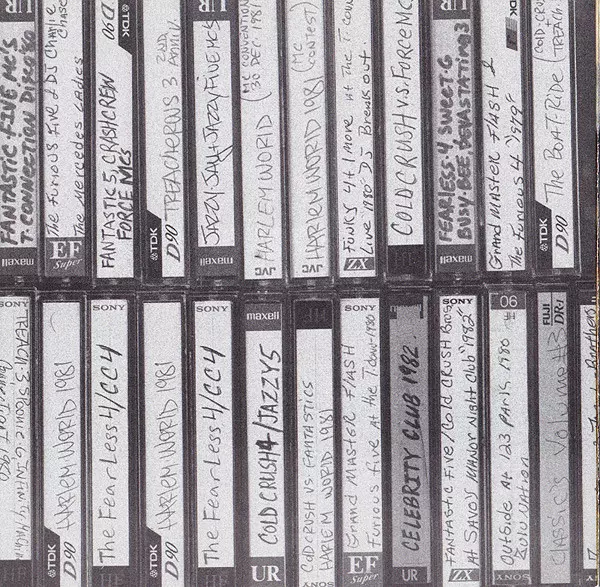 FANTASTIC FIVE MC'S
T. CONNECTION DISCO 80
maxell
The Furious Five & DJ Charlie Chase
The Mercedes Ladies
EF
Super
TDK
D 90
FANTASTIC 5, CRASH CREW
FORCE MCS
maxell
TREACHEROUS 3
2ND
TDK
D90
JAZZY JAY + JAZZY FIVE MC'S
maxell
HARLEM WORLD (MC CONVENTION
30 DEC. 1981)
JVC
HARLEM WORLD 1981 (MC
CONTEST)
JVC
FUNKY 4 + 1 MORE At The T. Conn
Live 1980 DJ Breakout
ZX
COLD CRUSH V.S. FORCE MC
FEARLESS-4 SWEET-G
BUSY BEE, DEVASTATING 3
maxell
Grand Master FLASH &
The Furious 4 "1979"
maxell
The BOAT RIDE (COLD-CRU
TREACH
TDK
D90
SONY
TREACH-3, SPOONIE G, INFINITY
HARLEM WORLD 1981
TDK
D90
SONY
The FearLess 4/CC4
HARLEM WORLD 1981
TDK
D90
SONY
The FearLess 4/CC4
maxell
COLD CRUSH 4/JAZZY 5
UR
HF
COLD CRUSH VS. FANTASTICS
HARLEM WORLD 1981
SONY
SONY
Grand Master FLASH
Furious Five at the 1980
EF
Super
CELEBRITY CLUB 1982.
UR
SONY
FANTASTIC FIVE / COLD CRUSH Bros
At SAVOY MANOR Night Club "1982"
ZX
90
HF
Outside At 123 PARK 1980
ZULU NATION
SONY
FUJI
DR-I
CLASSICS VOLUME #3
Brothers